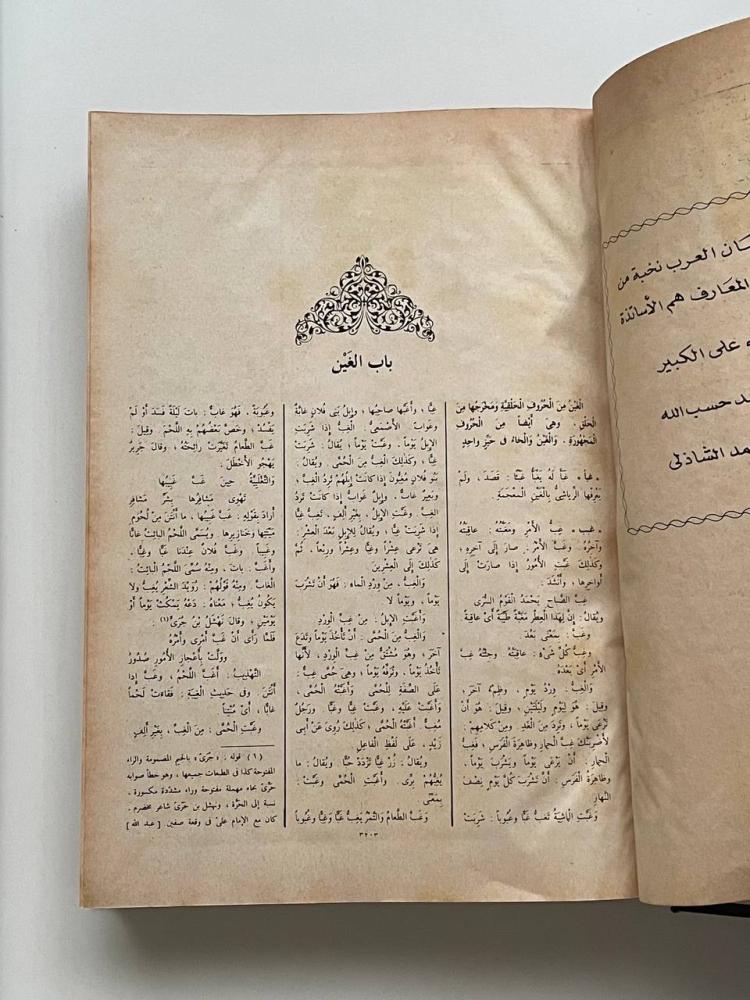 باب الغَيْن
الغَيْنُ مِنَ الْحُرُوفِ الْحَلْقِيَّةِ وَمَخْرَجُهَا مِنَ
الْحَلْقِ ، وَهِيَ أَيْضاً مِنَ الْحُرُوفِ
الْمَجْهُورَةِ ، وَالْغَيْنُ وَالْخَاءُ فِي حَيِّزٍ واحِدٍ
• غبأ • غَبَأَ لَهُ يَغْبَأُ غَبْئاً : قَصَدَ ، وَلَمْ
يَعْرِفْها الرِّياشِيُّ بِالْغَيْنِ الْمُعْجَمَةِ .
• غبب • غِبُّ الأَمْرِ وَمَغَبَّتُهُ : عاقِبَتُهُ
وَآخِرُهُ . وَغَبَّ الأَمْرُ : صارَ إِلَى آخِرِهِ ؛
وَكَذلِكَ غَبَّتِ الأُمُورُ إِذا صارَتْ إِلَى
أَواخِرِها ، وَأَنْشَدَ :
غِبَّ الصَّباحِ يَحْمَدُ الْقَوْمُ السُّرَى
وَيُقالُ : إِنَّ لِهذَا الْعِطْرِ مَغَبَّةً طَيِّبَةً أَىْ عاقِبَةً .
وَغِبَّ : بِمَعْنَى بَعْدَ .
وَغِبُّ كُلِّ شَيْءٍ : عاقِبَتُهُ . وَجِئْتُهُ غِبَّ
الأَمْرِ أَىْ بَعْدَهُ .
وَالْغِبُّ : وِرْدُ يَوْمٍ ، وَظِمْءُ آخَرَ ؛
وَقِيلَ : هُوَ لِيَوْمٍ وَلَيْلَتَيْنِ ؛ وَقِيلَ : هُوَ أَنْ
تَرْعَى يَوْماً ، وَتَرِدَ مِنَ الْغَدِ . وَمِنْ كَلامِهِمْ :
لأَضْرِبَنَّكَ غِبَّ الْحِمارِ وَظاهِرَةَ الْفَرَسِ ؛ فَغِبُّ
الْحِمارِ : أَنْ يَرْعَى يَوْماً وَيَشْرَبَ يَوْماً ،
وَظاهِرَةُ الْفَرَسِ : أَنْ تَشْرَبَ كُلَّ يَوْمٍ نِصْفَ
النَّهارِ .
وَغَبَّتِ الْماشِيَةُ تَغِبُّ غَبًّا وَغُبُوباً : شَرِبَتْ
غِبًّا ، وَأَغَبَّها صاحِبُها ، وَإِبِلُ بَنِي فُلانٍ غابَّةٌ
وَغَوابُّ . الأَصْمَعِيُّ : الْغِبُّ إِذا شَرِبَتِ
الإِبِلُ يَوْماً ، وَغَبَّتْ يَوْماً ؛ يُقالُ : شَرِبَتْ
غِبًّا ؛ وَكَذلِكَ الْغِبُّ مِنَ الْحُمَّى . وَيُقالُ :
بَنُو فُلانٍ مُغِبُّونَ إِذا كانَتْ إِبِلُهُمْ تَرِدُ الْغِبَّ ،
وَبَعِيرٌ غابٌّ ، وَإِبِلٌ غَوابُّ إِذا كانَتْ تَرِدُ
الْغِبَّ . وَغَبَّتِ الإِبِلُ ، بِغَيْرِ أَلِفٍ ، تَغِبُّ غِبًّا
إِذا شَرِبَتْ غِبًّا ؛ وَيُقالُ لِلإِبِلِ بَعْدَ الْعِشْرِ :
هِيَ تَرْعَى عِشْراً وَغِبًّا وَعِشْراً وَرِبْعاً ، ثُمَّ
كَذلِكَ إِلَى الْعِشْرِينَ .
وَالْغِبُّ ، مِنْ وِرْدِ الْماءِ : فَهُوَ أَنْ تَشْرَبَ
يَوْماً ، وَيَوْماً لا .
وَأَغَبَّتِ الإِبِلُ : مِنْ غِبِّ الْوِرْدِ .
وَالْغِبُّ مِنَ الْحُمَّى : أَنْ تَأْخُذَ يَوْماً وَتَدَعَ
آخَرَ ؛ وَهُوَ مُشْتَقٌّ مِنْ غِبِّ الْوِرْدِ ، لأَنَّها
تَأْخُذُ يَوْماً ، وَتُرَفِّهُ يَوْماً ؛ وَهِيَ حُمَّى غِبٌّ :
عَلَى الصِّفَةِ لِلْحُمَّى . وَأَغَبَّتْهُ الْحُمَّى ،
وَأَغَبَّتْ عَلَيْهِ ، وَغَبَّتْ غِبًّا وَغَبًّا . وَرَجُلٌ
مُغِبٌّ : أَغَبَّتْهُ الْحُمَّى ؛ كَذلِكَ رُوِىَ عَنْ أَبِي
زَيْدٍ ، عَلَى لَفْظِ الْفاعِلِ .
وَيُقالُ : زُرْ غِبًّا تَزْدَدْ حُبًّا . وَيُقالُ : ما
يُغِبُّهُمْ بِرِّى . وَأَغَبَّتِ الْحُمَّى وَغَبَّتْ :
بِمَعْنًى .
وَغَبَّ الطَّعامُ وَالتَّمْرُ يَغِبُّ غَبًّا وَغِبًّا وَغُبُوباً
وَغُبُوبَةً ، فَهُوَ غابٌّ : باتَ لَيْلَةً فَسَدَ أَوْ لَمْ
يَفْسُدْ ، وَخَصَّ بَعْضُهُمْ بِهِ اللَّحْمَ . وَقِيلَ :
غَبَّ الطَّعامُ تَغَيَّرَتْ رائِحَتُهُ ؛ وَقالَ جَرِيرٌ
يَهْجُو الأَخْطَلَ :
وَالتَّغْلِبِيَّةُ حِينَ غَبَّ غَبِيبُها
تَهْوِى مَشافِرُها بِشَرِّ مَشافِرِ
أَرادَ بِقَوْلِهِ : غَبَّ غَبِيبُها ، ما أَنْتَنَ مِنْ لُحُومِ
مَيْتَتِها وَخَنازِيرِها . وَيُسَمَّى اللَّحْمُ الْبائِتُ غابًّا
وَغَبِيباً . وَغَبَّ فُلانٌ عِنْدَنا غَبًّا وَغِبًّا ،
وَأَغَبَّ : باتَ ، وَمِنْهُ سُمِّىَ اللَّحْمُ الْبائِتُ :
الْغابَّ . وَمِنْهُ قَوْلُهُمْ : رُوَيْدَ الشِّعْرَ يَغِبَّ وَلا
يَكُونُ يُغِبُّ ؛ مَعْناهُ : دَعْهُ يَمْكُثْ يَوْماً أَوْ
يَوْمَيْنِ ؛ وَقالَ نَهْشَلُ بْنُ جُرَىٍّ(١) :
فَلَمَّا رَأَى أَنْ غَبَّ أَمْرِى وَأَمْرُهُ
وَوَلَّتْ بِأَعْجازِ الأُمُورِ صُدُورُ
التَّهْذِيبُ : أَغَبَّ اللَّحْمُ ، وَغَبَّ إِذا
أَنْتَنَ . وَفِي حَدِيثِ الْغِيبَةِ : فَقاءَتْ لَحْماً
غابًّا ، أَىْ مُنْتِناً .
وَغَبَّتِ الْحُمَّى : مِنَ الْغِبِّ ، بِغَيْرِ أَلِفٍ .
(١) قوله : «جُرَىّ» بالجيم المضمومة والراء
المفتوحة كذا فى الطبعات جميعها ، وهو خطأ صوابه
حَرِّىّ بحاء مهملة مفتوحة وراء مشدّدة مكسورة ،
نسبة إلى الحَرَّة ، ونهشل بن حَرِّىّ شاعر مخضرم .
كان مع الإمام علىّ فى وقعة صفين . [عبد الله]
٣٢٠٣
ـان العرب نخبة من
المعَارف هم الأساتذة
ـه على الكبير
ـد حسب الله
ـمد الشاذلى